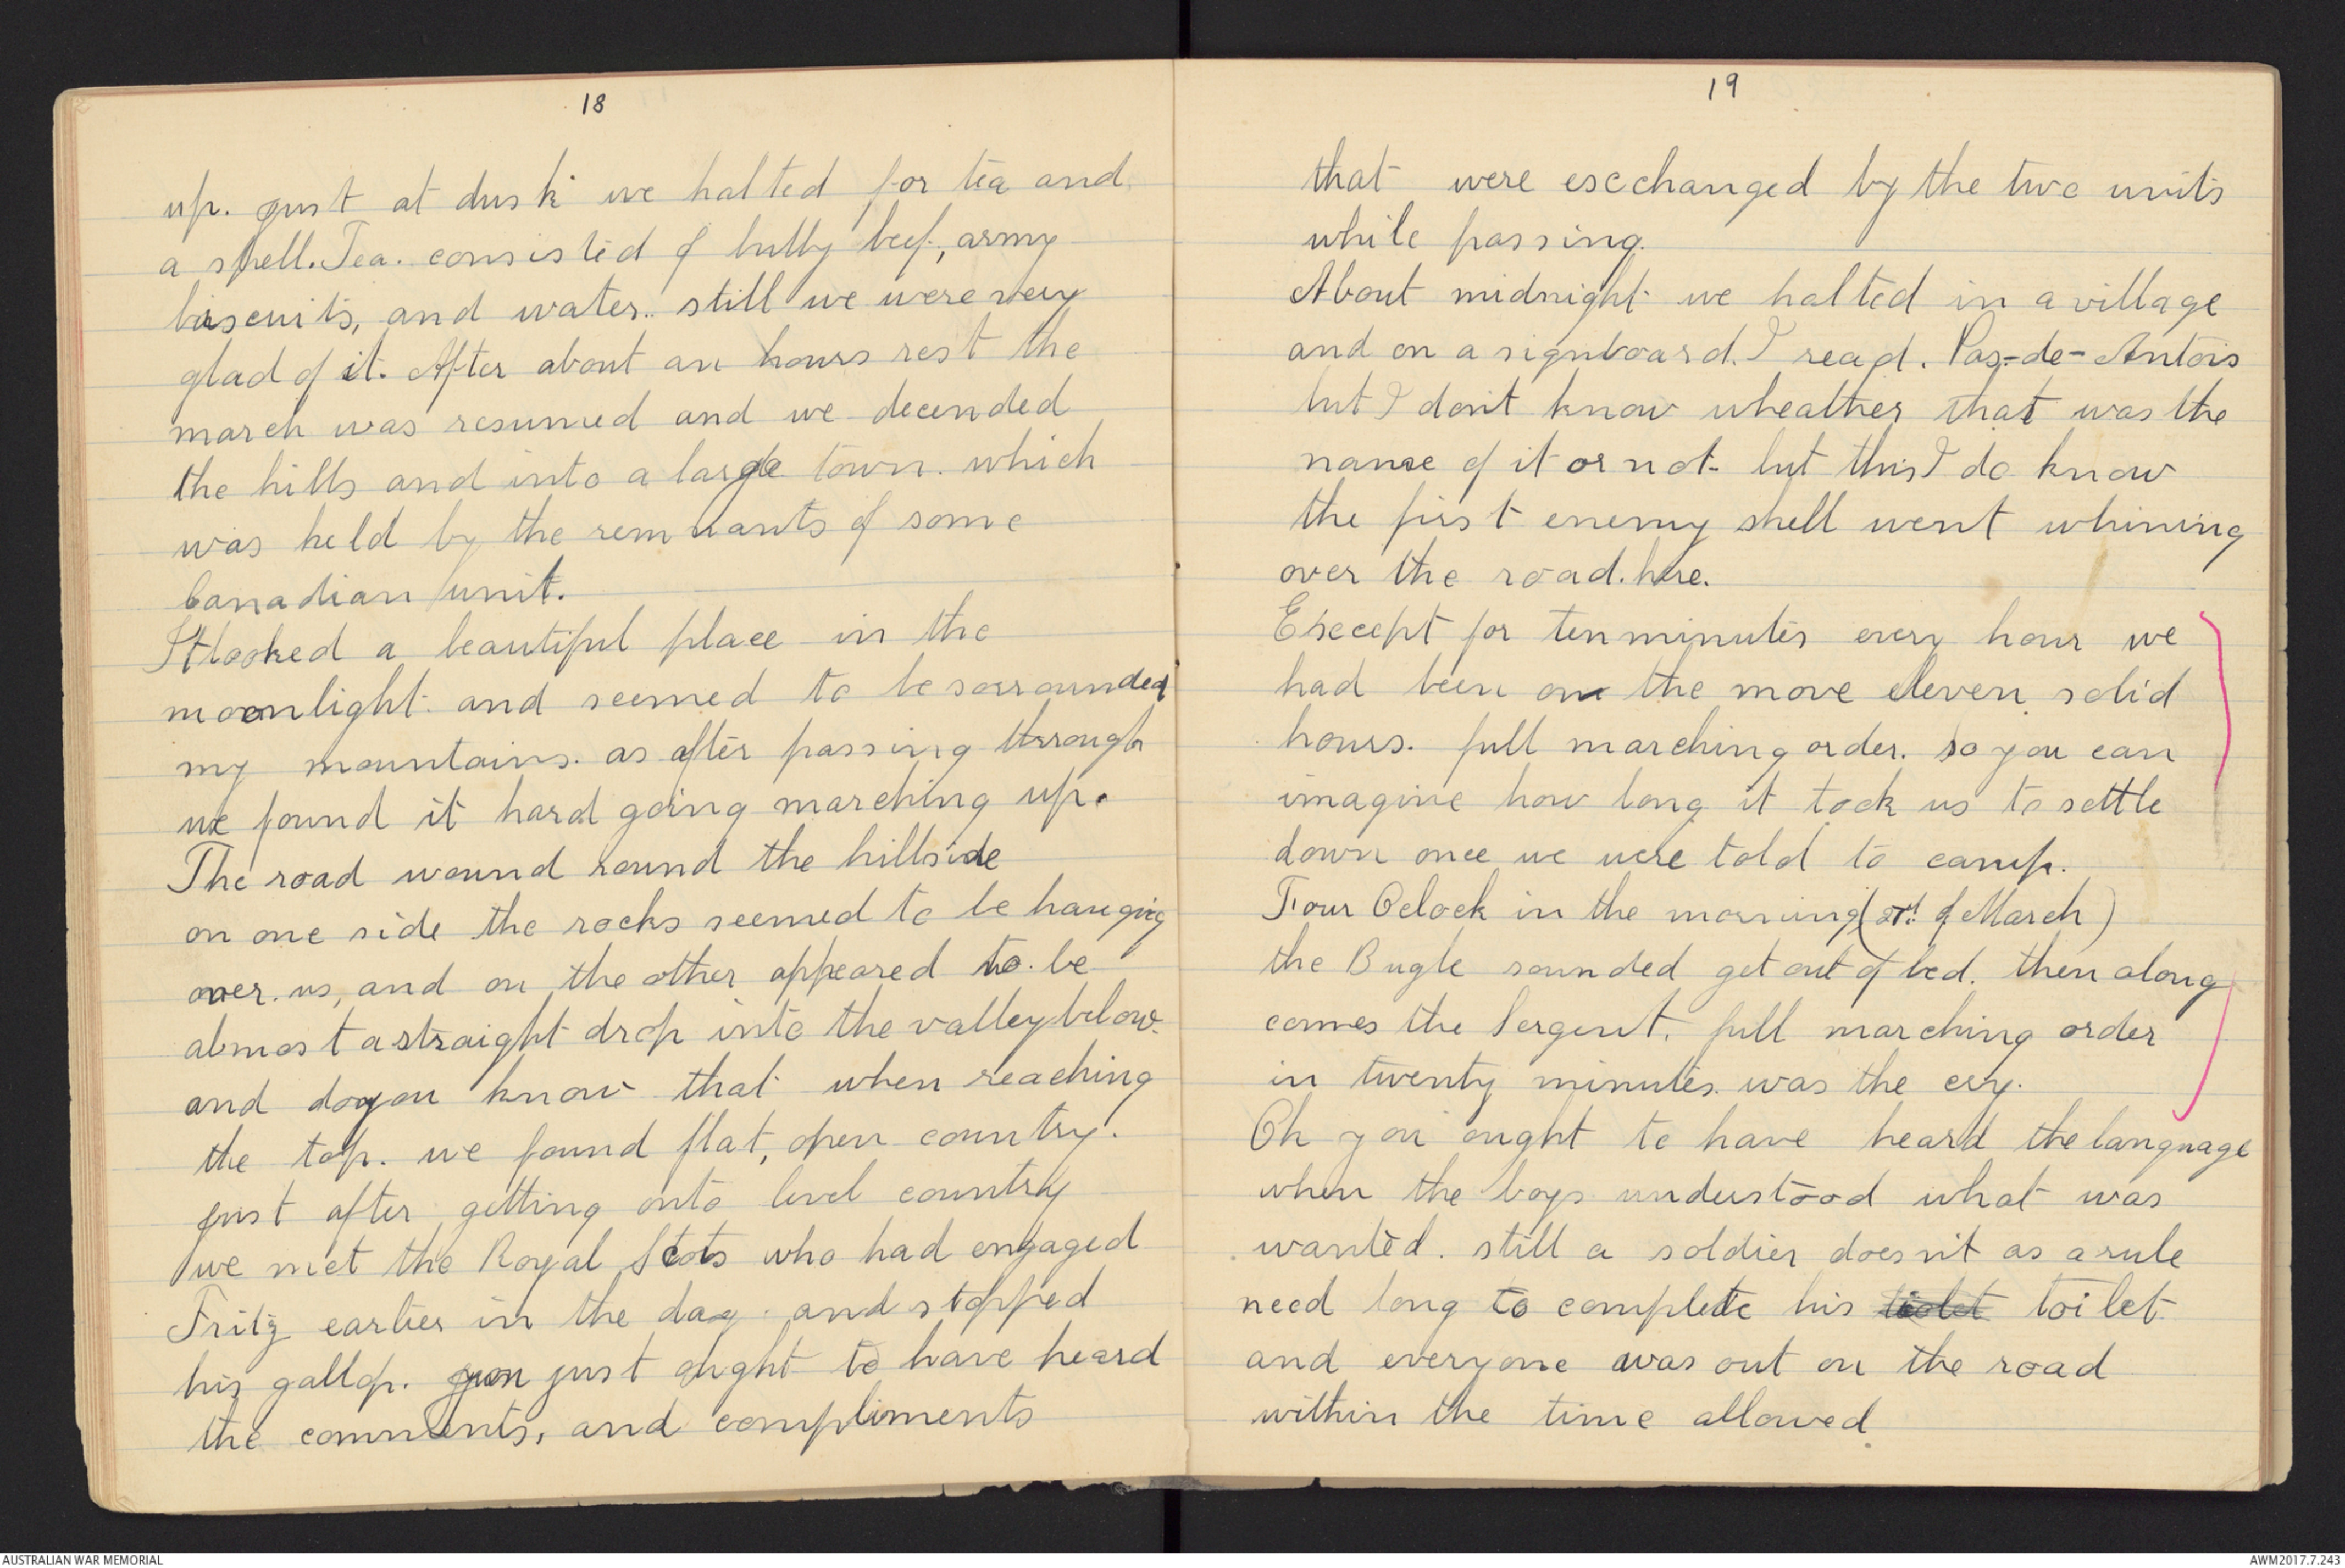 18
up. just at dusk we halted for tea and
a spell. Tea. consisted of bully beef, army
biscuits, and water.. still we were very
glad of it. After about an hours rest the
march was resumed and we decended
the hills and into a large town. which
was held by the remnants of some
Canadian unit.
It looked a beautiful place in the
moonlight. and seemed to be sorrounded
my mountains. as after passing through
we found it hard going marching up.
The road wound round the hillside
on one side the rocks seemed to be hanging
over. us, and on the other appeared to. be
almost a straight drop into the valley below.
and do you know that when reaching
the top. we found flat, open country.
just after getting onto level country
we met the Royal Scots who had engaged
Fritz earlier in the day. and stopped
his gallop. you just ought to have heard
the comments, and compliments
19
that were escchanged by the two units
while passing.
About midnight we halted in a village
and on a signboard. I read. Pas-de-Antois
but I don't know wheather that was the
name of it or not. but this I do know
the first enemy shell went whining
over the road. here.
Escept for ten minutes every hour we
had been on the move eleven solid
hours. full marching order. so you can
imagine how long it took us to settle
down once we were told to camp.
Four Oclock in the morning ( of March)
the Bugle sounded get out of bed. then along
comes the Sergent. full marching order
in twenty minutes. was the cry.
Oh you ought to have heard the language
when the boys understood what was
wanted. still a soldier doesn't as a rule
need long to complete his toilet
and everyone was out on the road
within the time allowed
AUSTRALIAN WAR MEMORIAL
AWM2017.7.243